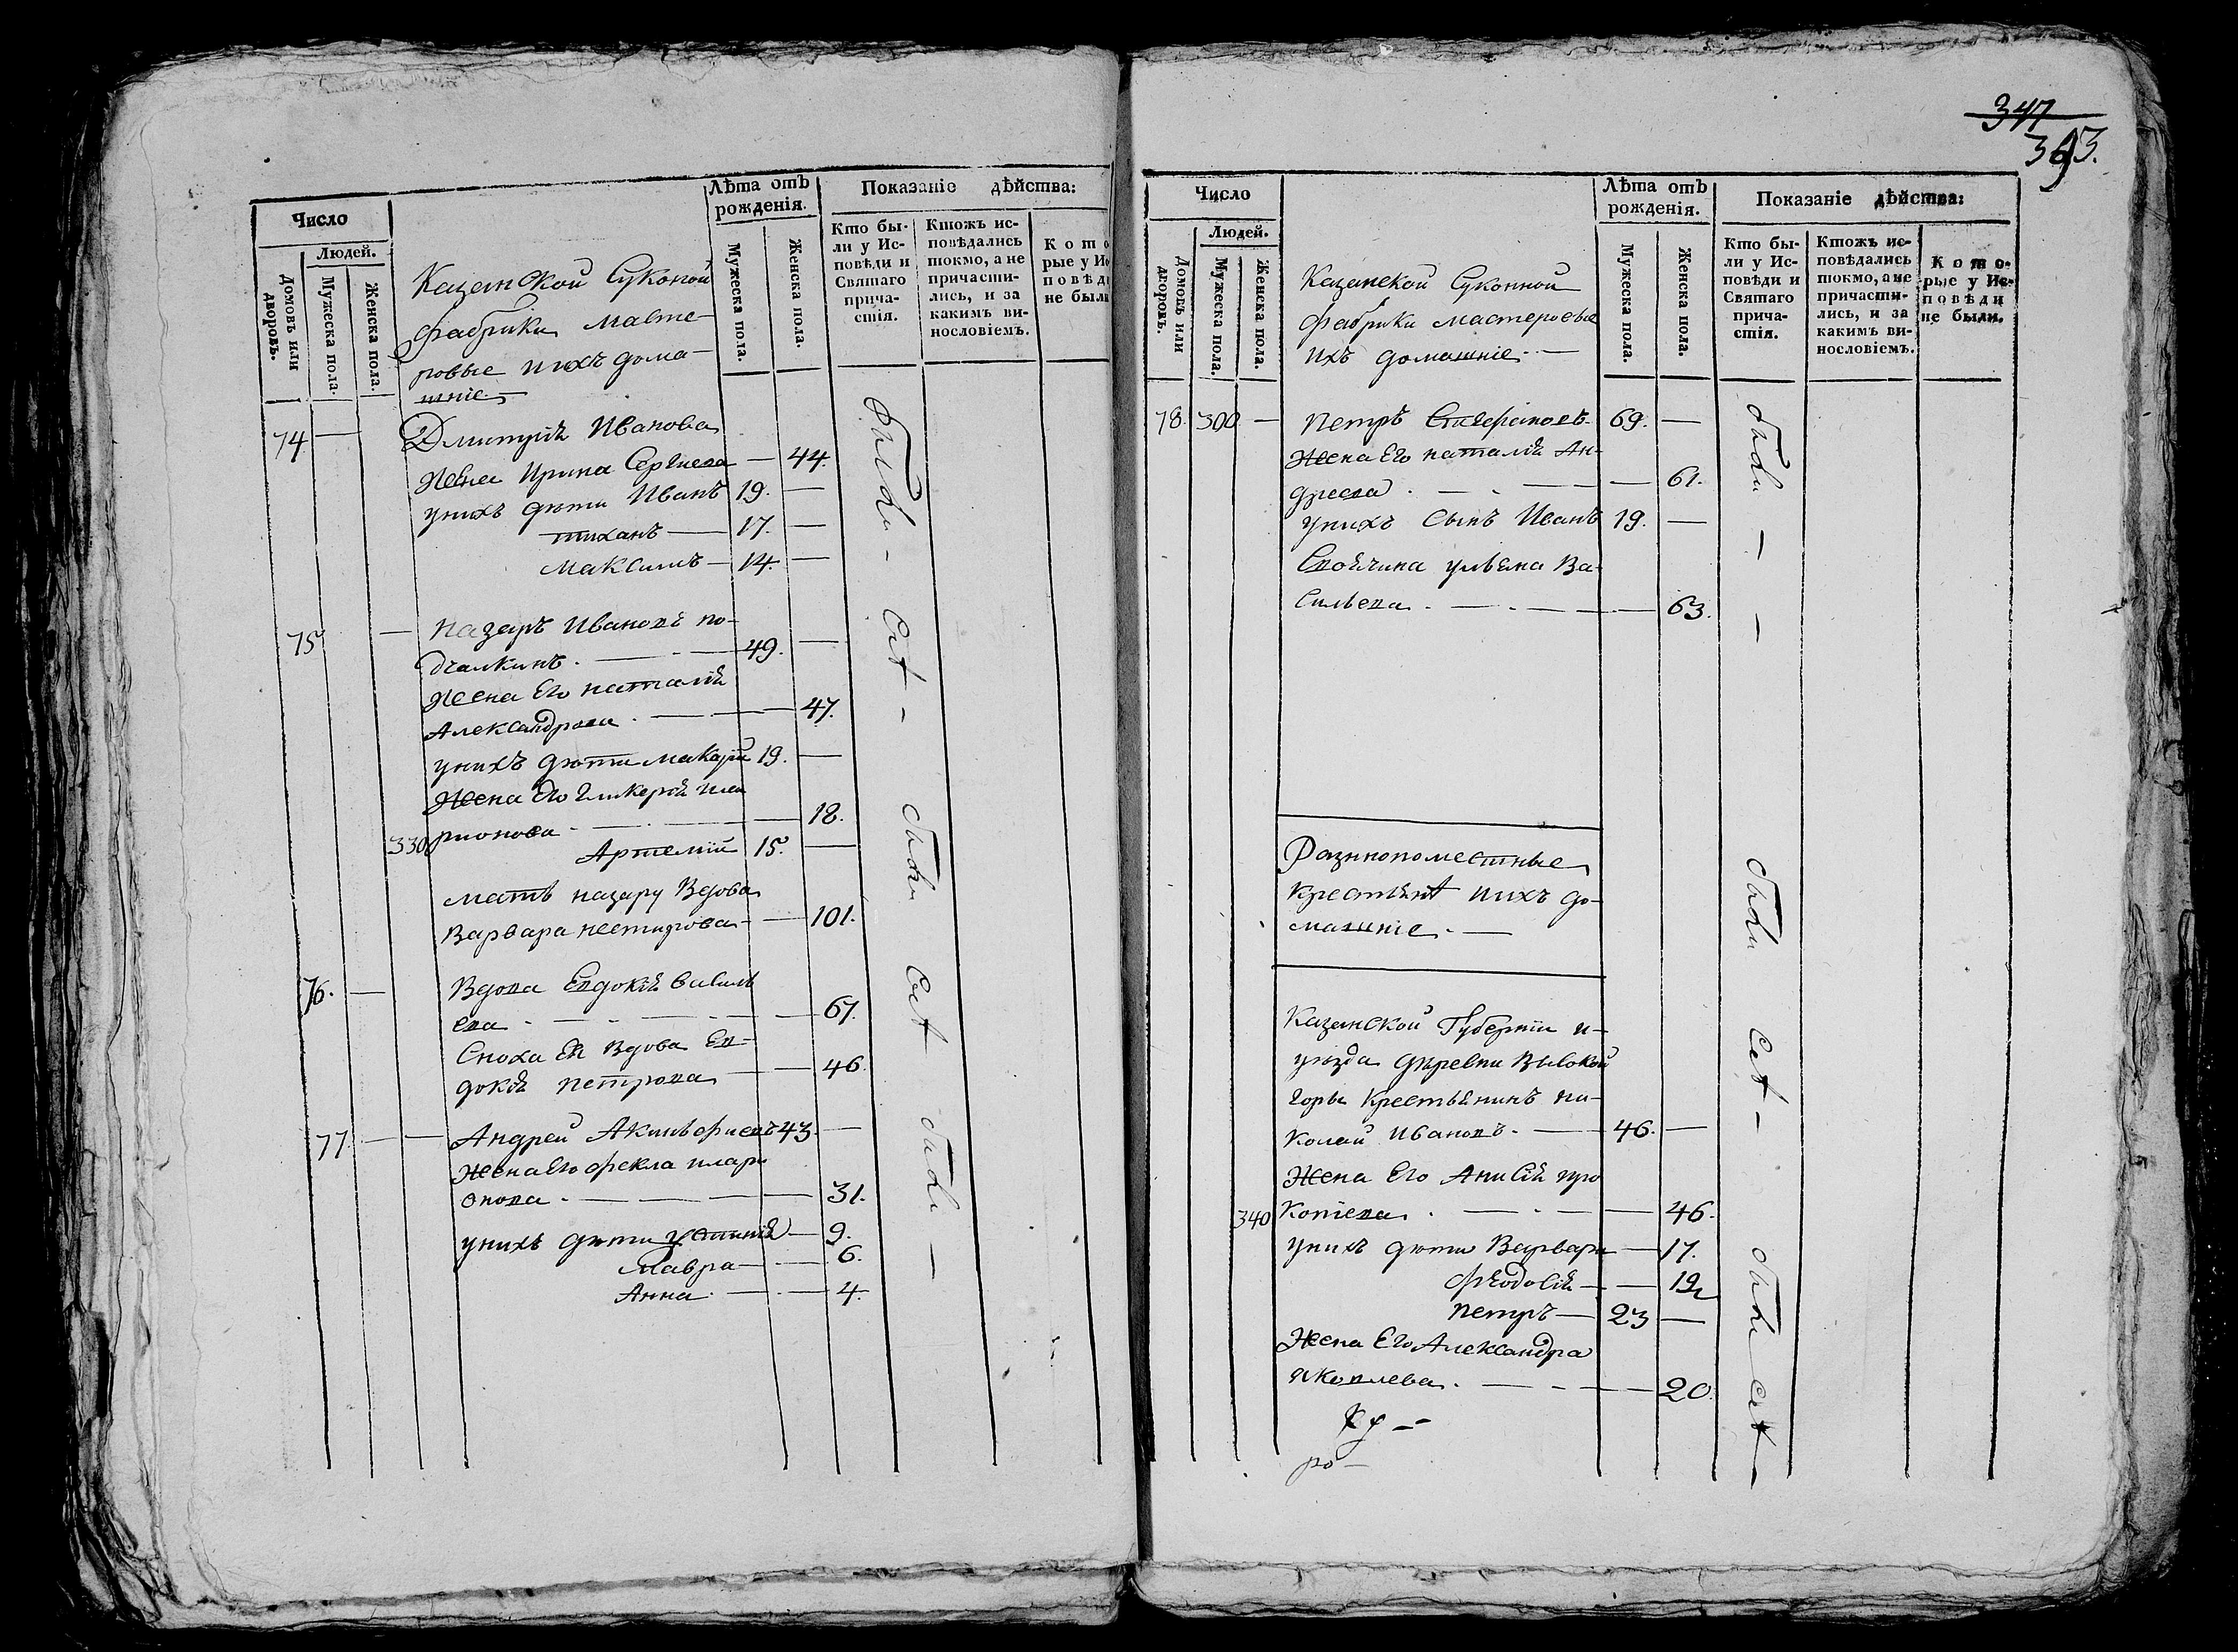 347
393.
Число
Людей.
Домовъ или дворовъ.
Мужеска пола.
Женска пола.
Казанской Суконой
фабрики масте-
ровые и ихъ дома-
шніе
Лѣта отъ рожденія.
Мужеска пола.
Женска пола.
Показаніе дѣйства:
Кто бы-
ли у Ис-
повѣди и
Святаго
прича-
стія.
Ктожъ ис-
повѣдались
токмо, а не
причасти-
лись, и за
какимъ ви-
нословіемъ.
К о т о
рые у Ис
п о в ѣ д
не были
74 — Дмитрія Иванова
жена Ирина Сергиева — 44.
у нихъ дѣти Иванъ 19. —
тиханъ — 17. —
максимъ — 14. —
75 — назаръ Ивановъ по-
дчалкинъ. — 49. —
жена Его наталія
Александрова. — 47.
у нихъ дѣти макарій 19. —
жена Его гликерія ила
330 рионова — 18.
Артемій 15. —
мать назару вдова
Варвара нестирова — 101.
76. — Вдова Евдокія василь
ева — 67.
Сноха Ея вдова Ев-
докія петрова — 46.
77. — — Андрей Акинфиевъ 43. —
жена Его фекла илари
онова. — 31.
у нихъ дѣти устинія — 9.
мавра — 6.
Анна. — 4.
были — вст — были вст были —
Число
Людей.
Домовъ или дворовъ.
Мужеска пола.
Женска пола.
Казанской Суконной
фабрики мастеровые
ихъ домашніе. —
Лѣта отъ рожденія.
Мужеска пола.
Женска пола.
Показаніе дѣйства:
Кто бы-
ли у Ис-
повѣди и
Святаго
прича-
стія.
Ктожъ ис-
повѣдались
токмо, а не
причасти-
лись, и за
какимъ ви-
нословіемъ.
К о т о-
рые у Ис-
п о в ѣ д и
не были.
78. 300 — петръ 69. —
жена Его наталія Ан-
дреева. — 61.
у нихъ сынъ Иванъ 19. —
Своячина ульяна Ва-
сильева. — 63.
Разнопоместные
крестьяне и ихъ до-
машніе. —
Казанской Губерніи и
уѣзда деревни высокой
горы крестьянинъ ни-
колай Ивановъ. — 46. —
жена Его Анисія про
340 копіева. — 46.
у нихъ дѣти Варвара — 17.
феодосія — 12
петръ — 23 —
жена Его Александра
яковлева. — 20.
ку —
ро —
были — — были вст — были вст —